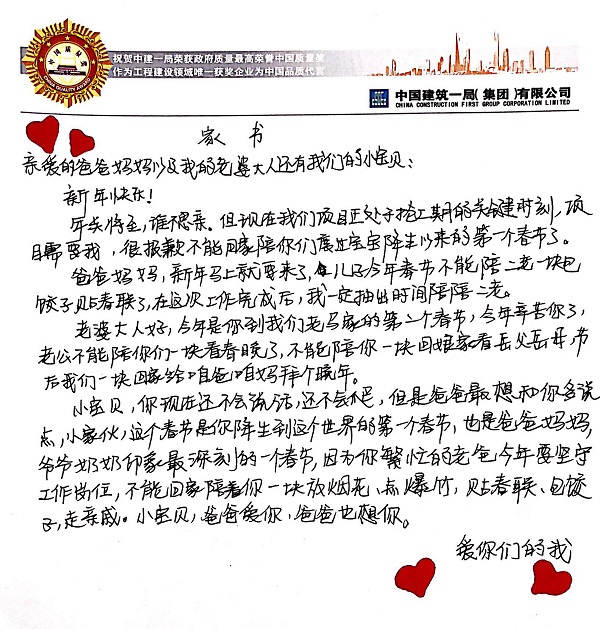 中国质量奖
CHINA QUALITY AWARD
祝贺中建一局荣获政府质量最高荣誉中国质量奖
作为工程建设领域唯一获奖企业为中国品质代言
中国建筑一局(集团)有限公司
CHINA CONSTRUCTION FIRST GROUP CORPORATION LIMITED
家书
亲爱的爸爸妈妈以及我的老婆大人还有我们的小宝贝:
新年快乐!
年关将至,谁不思亲。但现在我们项目正处于抢工期的关键时刻,项
目需要我,很抱歉不能回家陪你们度过宝宝降生以来的第一个春节了。
爸爸妈妈,新年马上就要来了,儿子今年春节不能陪二老一块包
饺子贴春联了,在这次工作完成后,我一定抽出时间陪陪二老。
老婆大人好,今年是你到我们老马家的第二个春节,今年辛苦你了,
老公不能陪你们一块看春晚了,不能陪你一块回娘家看岳父岳母,节
后我们一块回家给咱爸咱妈拜个晚年。
小宝贝,你现在还不会说话,还不会爬,但是爸爸最想和你多说
点,小家伙,这个春节是你降生到这个世界的第一个春节,也是爸爸妈妈,
爷爷奶奶印象最深刻的一个春节,因为你繁忙的老爸今年要坚守
工作岗位,不能回家陪着你一块放烟花、点爆竹,贴春联、包饺
子,走亲戚。小宝贝,爸爸爱你,爸爸也想你。
爱你们的我